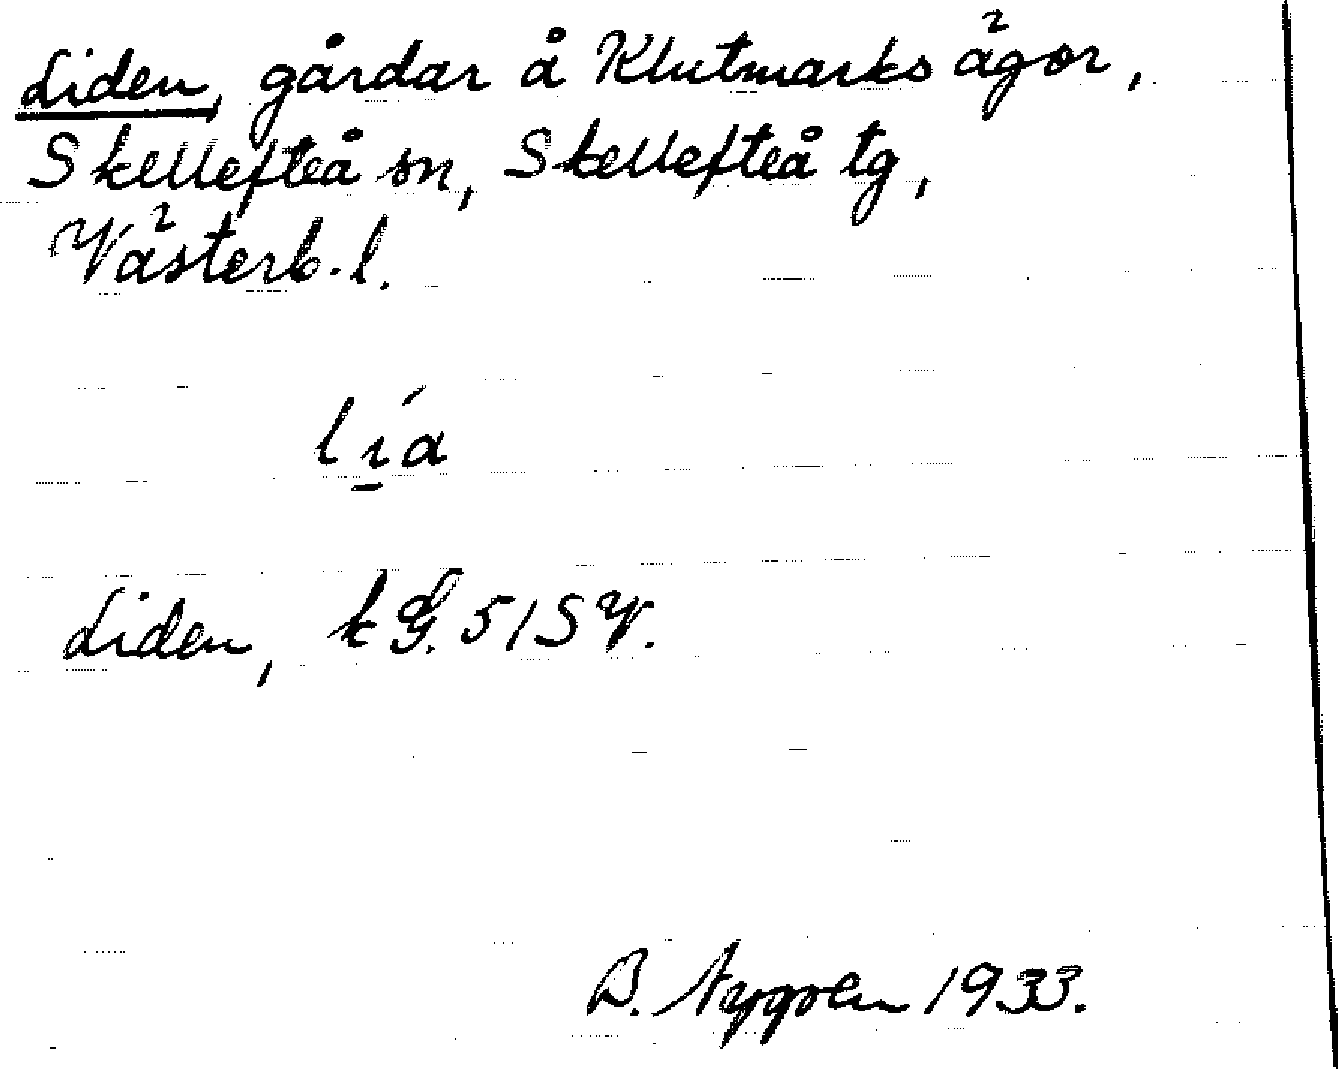 Liden, gårdar å Klutmarks ägor,
Skellefteå sn, Skellefteå tg,
Västerb. l.
lı̱́a
Liden, k G. 51 SV.
B. Nygren 1933.